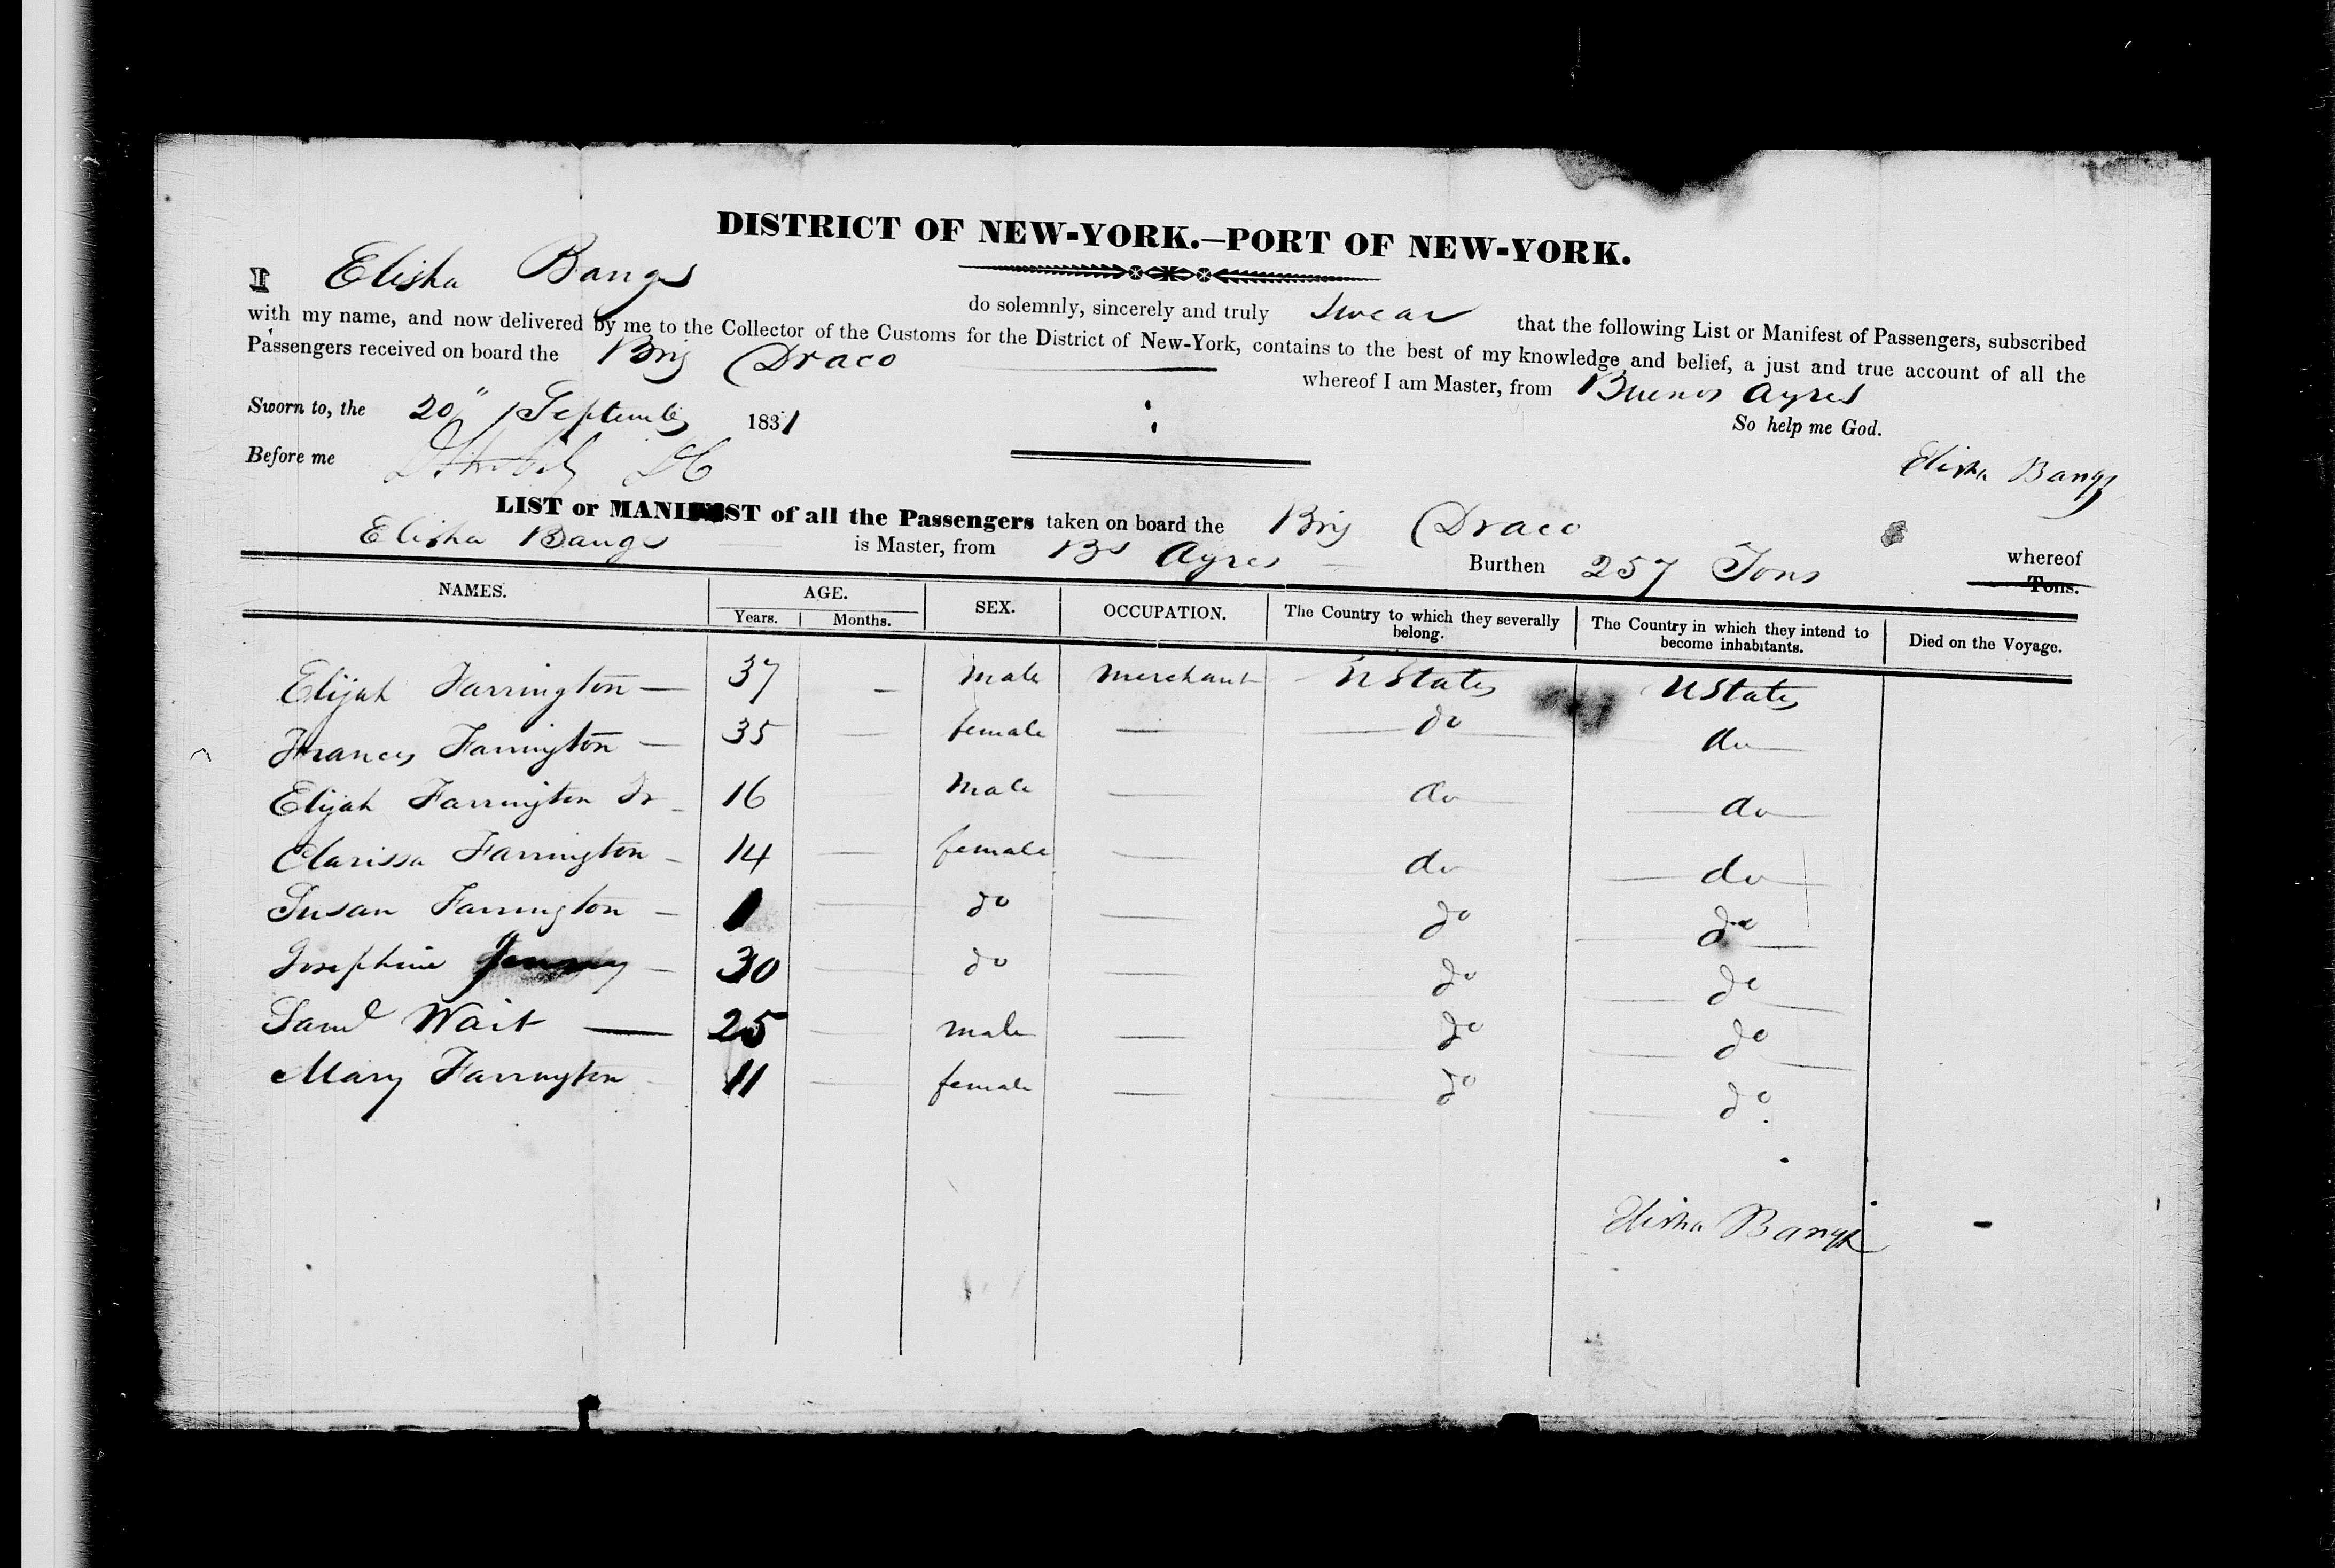 DISTRICT OF NEW-YORK.—PORT OF NEW-YORK.
I Elisha Bangs do solemnly, sincerely and truly swear that the following List or Manifest of Passengers, subscribed
with my name, and now delivered by me to the Collector of the Customs for the District of New-York, contains to the best of my knowledge and belief, a just and true account of all the
Passengers received on board the Brig Draco whereof I am Master, from Buenos Ayres
Sworn to, the 20" September 1831 So help me God.
Before me Elisha Bangs
LIST or MANIFEST of all the Passengers taken on board the Brig Draco whereof
Elisha Bangs is Master, from Bs Ayres Burthen 257 Tons Tons.
NAMES. AGE. SEX. OCCUPATION. The Country to which they severally belong. The Country in which they intend to become inhabitants. Died on the Voyage.
Years. Months.
Elijah Farrington — 37 — male merchant UStates UStates
Frances Farrington — 35 — female — do do
Elijah Farrington Jr — 16 — male — do do
Clarissa Farrington — 14 — female — do do
Susan Farrington — 1 — do — do do
Josephine — 30 — do — do do
Saml Wait — 25 — male — do do
Mary Farrington — 11 — female — do do
Elisha Bangs